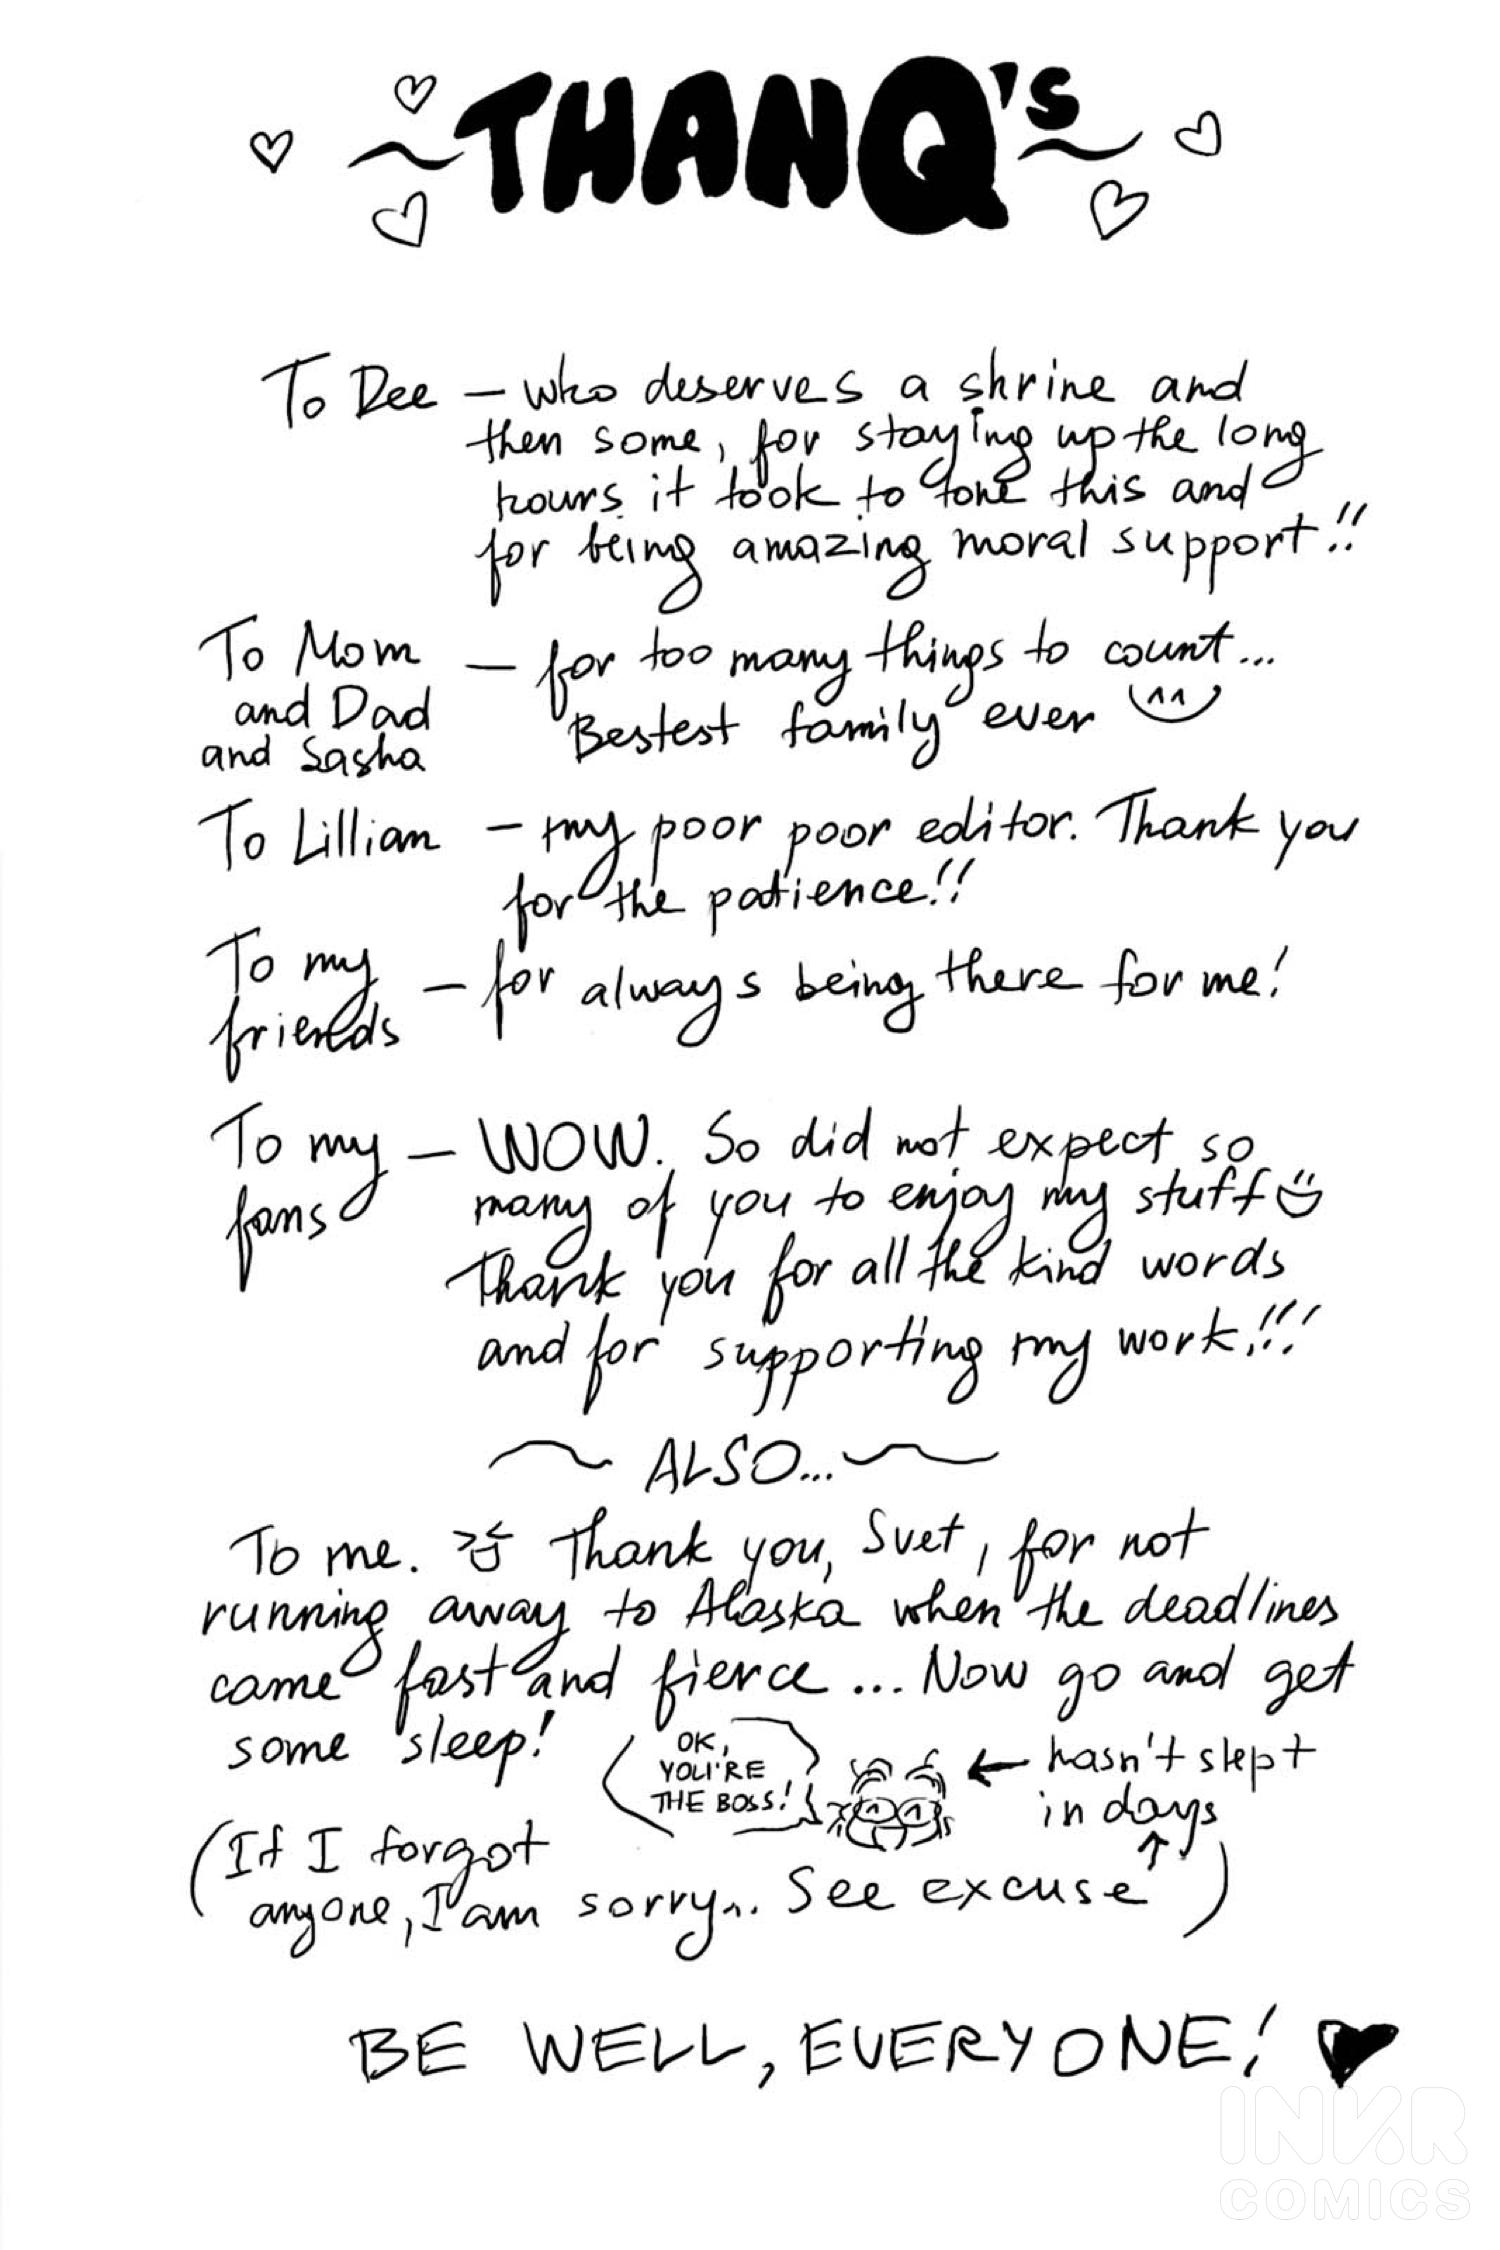 THANQ's
To Dee – who deserves a shrine and
then some, for staying up the long
hours it took to tone this and
for being amazing moral support!!
To Mom
and Dad
and Sasha
– for too many things to count...
Bestest family ever
To Lillian – my poor poor editor. Thank you
for the patience!!
To my
friends
– for always being there for me!
To my
fans
– WOW. So did not expect so
many of you to enjoy my stuff
Thank you for all the kind words
and for supporting my work!!!
~ ALSO... ~
To me. Thank you, Svet, for not
running away to Alaska when the deadlines
came fast and fierce... Now go and get
some sleep!
OK,
YOU'RE
THE BOSS!
← hasn't slept
in days
(If I forgot
anyone, I am sorry... See excuse ↑)
BE WELL, EVERYONE! ♥
INKR
COMICS